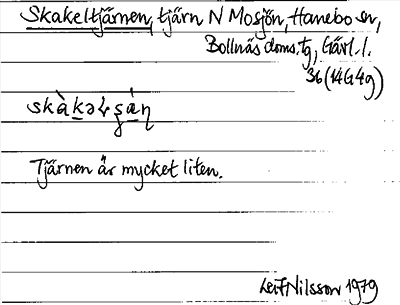 Skakeltjärnen, tjärn N Mosjön, Hanebo sn,
Bollnäs doms. tg, Gävl. l.
36 (14G 4g)
skàkəɫʂáɳ
Tjärnen är mycket liten.
Leif Nilsson 1979